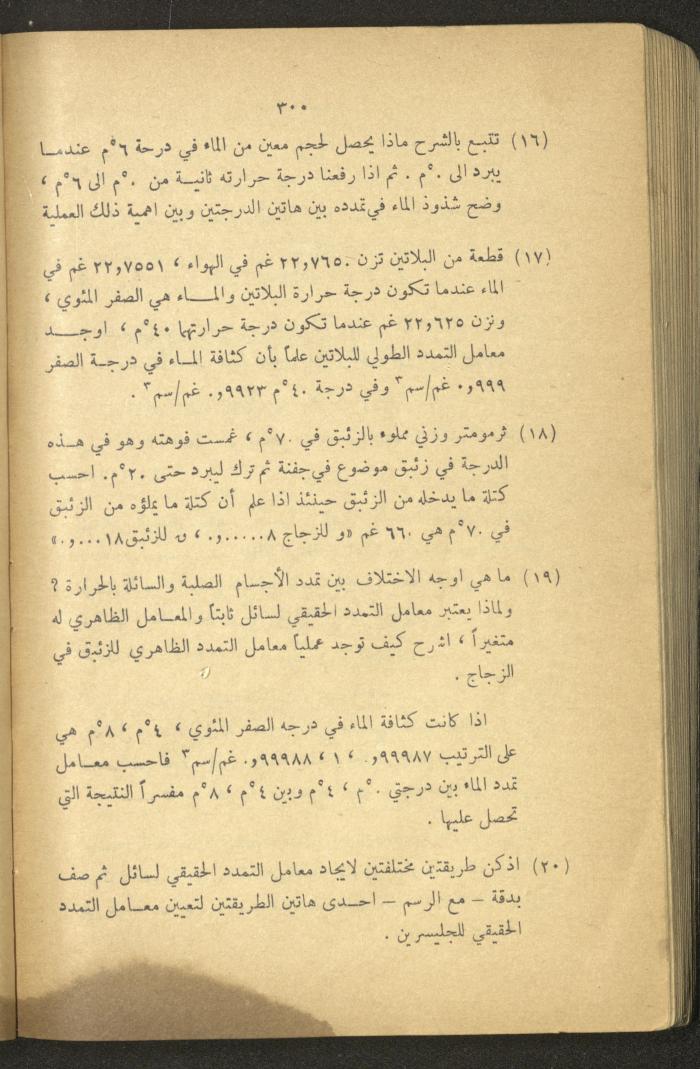 ٣٠٠
(١٦) تتبع بالشرح ماذا يحصل لحجم معين من الماء في درحة ٦°م عندما
يبرد الى ٠°م . ثم اذا رفعنا درجة حرارته ثانية من ٠°م الى ٦°م ،
وضح شذوذ الماء في تمدده بين هاتين الدرجتين وبين اهمية ذلك العملية
(١٧) قطعة من البلاتين تزن ٢٢,٧٦٥٠ غم في الهواء ، ٢٢,٧٥٥١ غم في
الماء عندما تكون درجة حرارة البلاتين والماء هي الصفر المئوي ،
ونزن ٢٢,٦٢٥ غم عندما تكون درجة حرارتهما ٤٠°م ، اوجد
معامل التمدد الطولي للبلاتين علماً بأن كثافة الماء في درجة الصفر
٠,٩٩٩ غم/سم٣ وفي درجة ٤٠°م ٠,٩٩٢٣ غم/سم٣ .
(١٨) ثرمومتر وزني مملوء بالزئبق في ٧٠°م ، غمست فوهته وهو في هذه
الدرجة في زئبق موضوع في جفنة ثم ترك ليبرد حتى ٢٠°م. احسب
كتلة ما يدخله من الزئبق حينئذ اذا علم أن كتلة ما يملؤه من الزئبق
في ٧٠°م هي ٦٦٠ غم «و للزجاج ٠,٠٠٠٠٠٨ ، و للزئبق ٠,٠٠٠١٨»
(١٩) ما هي اوجه الاختلاف بين تمدد الأجسام الصلبة والسائلة بالحرارة ؟
ولماذا يعتبر معامل التمدد الحقيقي لسائل ثابتاً والمعامل الظاهري له
متغيراً ، اشرح كيف توجد عملياً معامل التمدد الظاهري للزئبق في
الزجاج .
اذا كانت كثافة الماء في درجه الصفر المئوي ، ٤°م ، ٨°م هي
على الترتيب ٠,٩٩٩٨٧ ، ١ ، ٠,٩٩٩٨٨ غم/سم٣ فاحسب معامل
تمدد الماء بين درجتي ٠°م ، ٤°م وبين ٤°م ، ٨°م مفسراً النتيجة التي
تحصل عليها .
(٢٠) اذكن طريقتين مختلفتين لايجاد معامل التمدد الحقيقي لسائل ثم صف
بدقة – مع الرسم – احدى هاتين الطريقتين لتعيين معامل التمدد
الحقيقي للجليسرين .